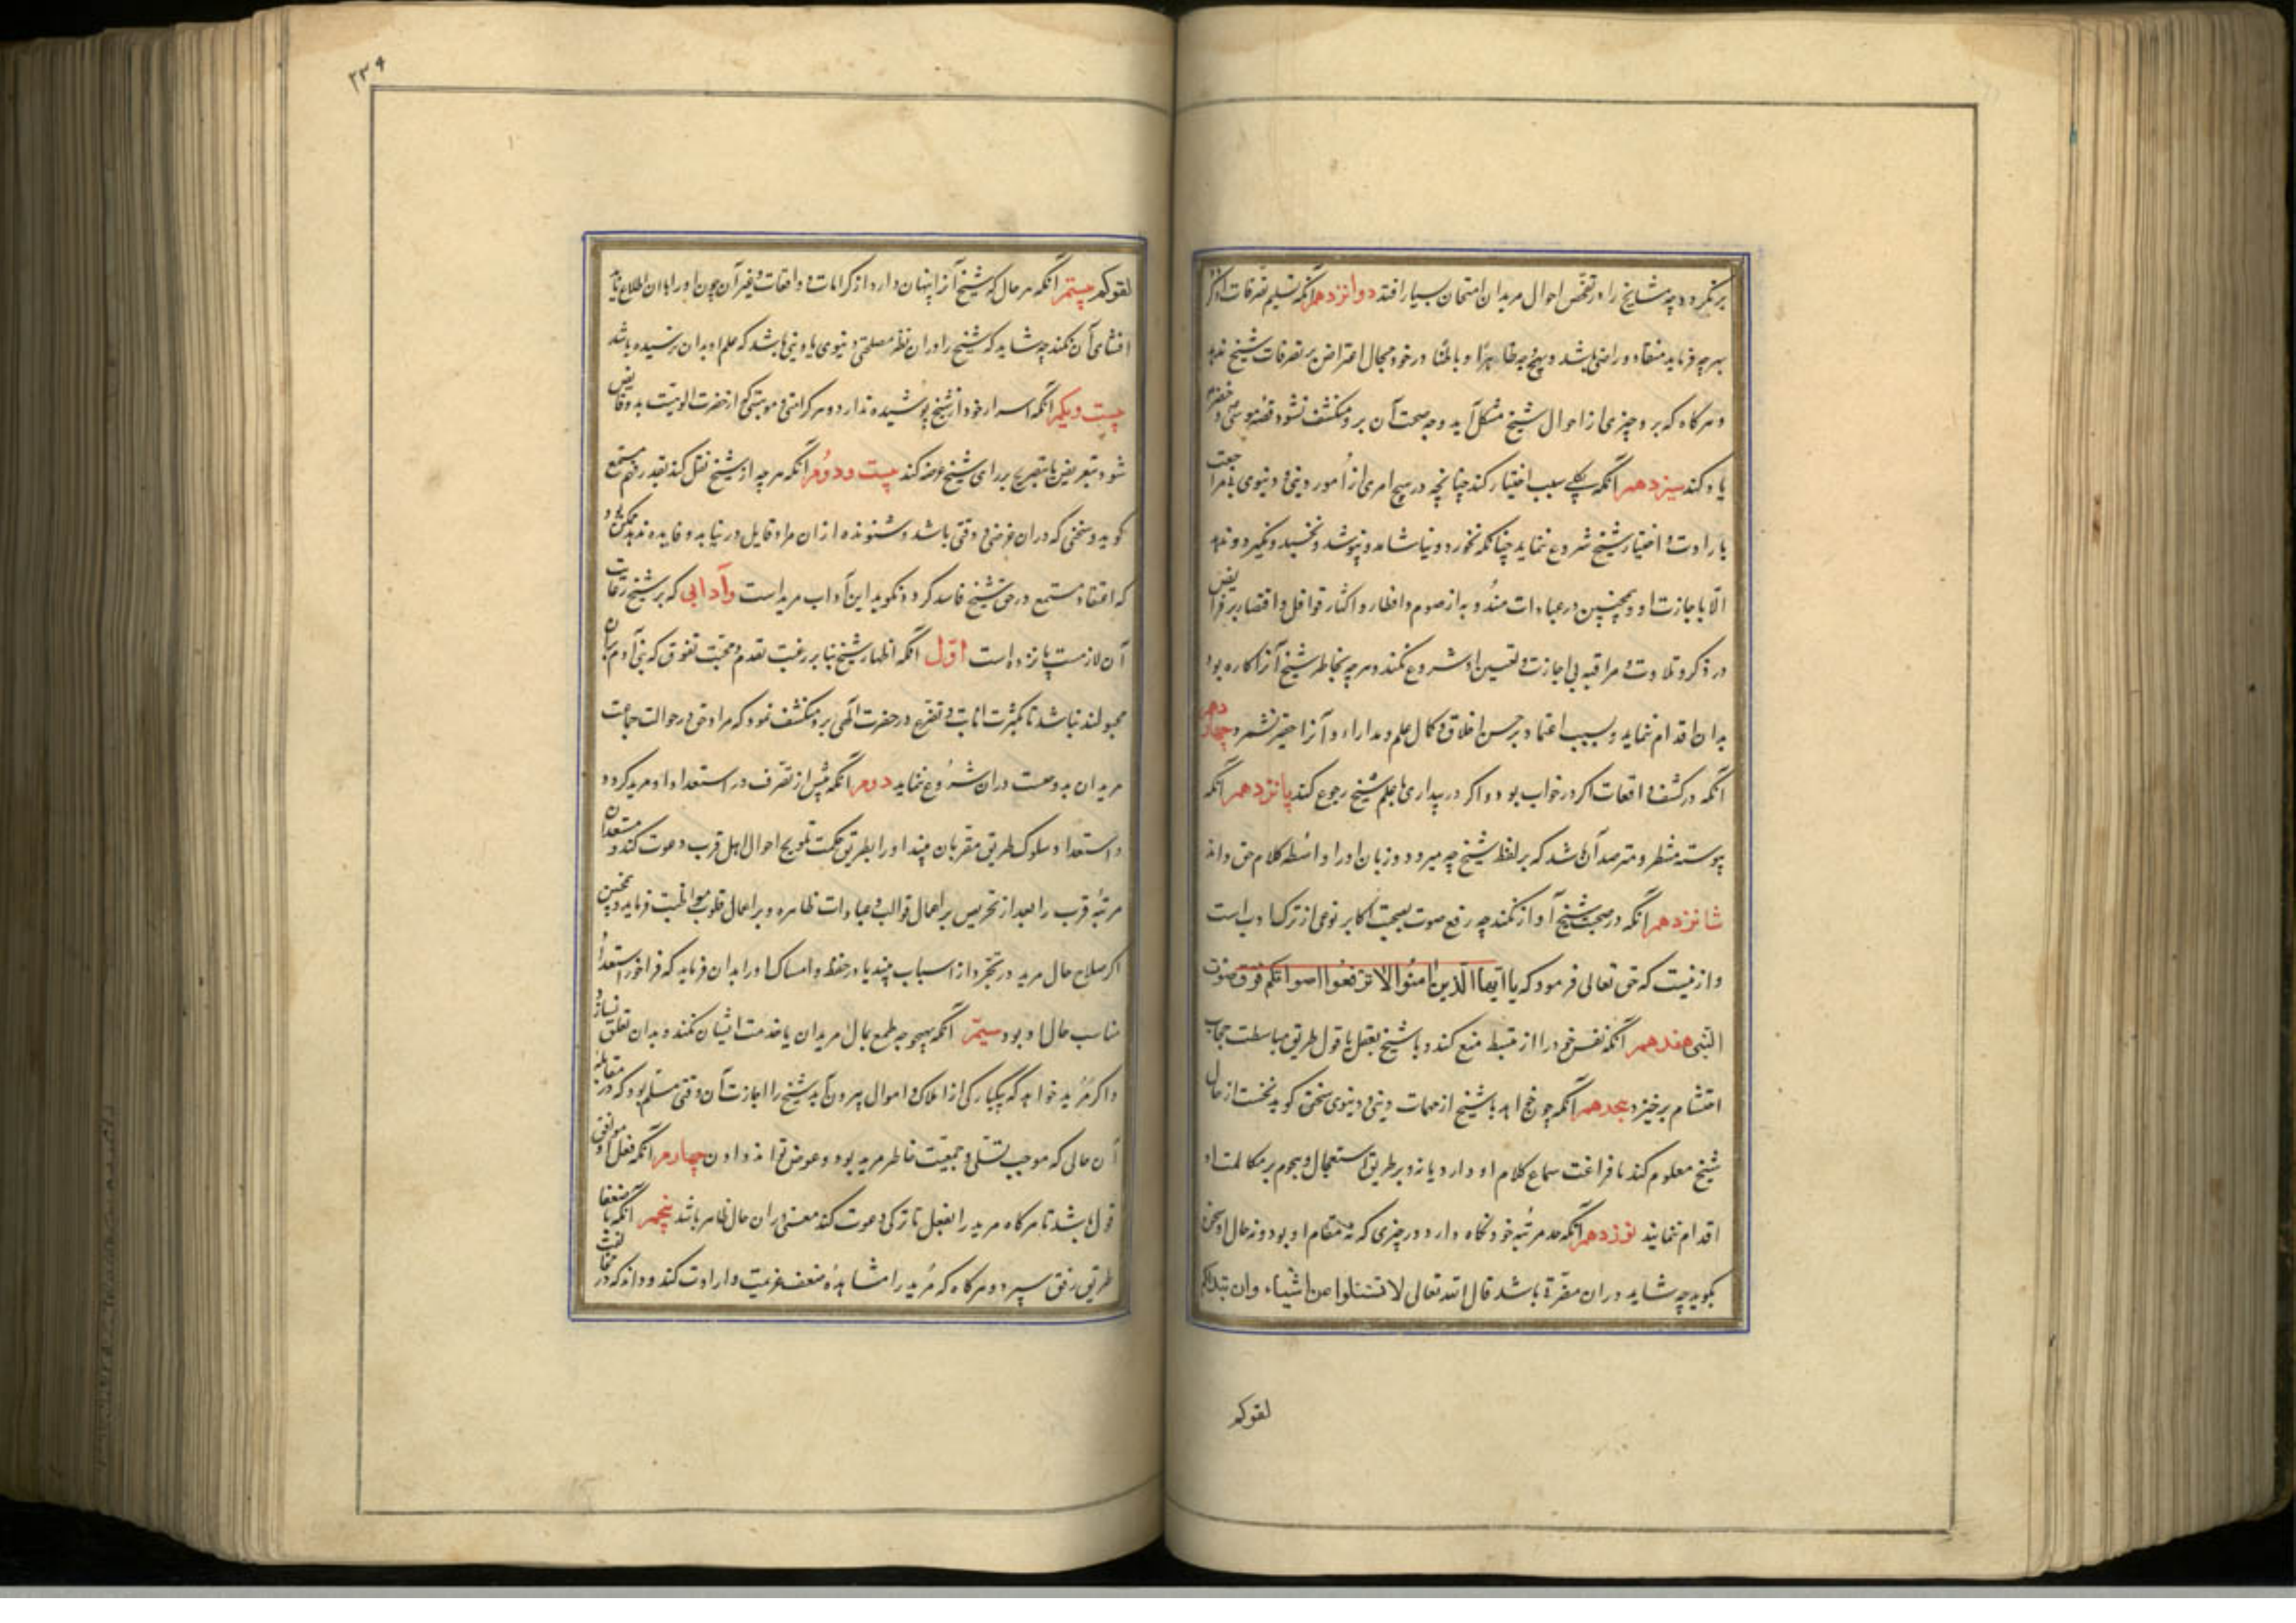 برنگردد چه مشایخ را در تفحص احوال مریدان امتحان بسیار افتد دوانزدهم آنکه تسلیم تصرفات او گر
بهرچه فرماید منقاد و راضی باشد و بهیچ وجه ظاهرًا و باطنًا در خود مجال اعتراض بر تصرفات شیخ ندهد
و هرکاه که برو چیزی از احوال شیخ مشکل آید و وجه صحت آن برو منکشف نشود قصهٔ موسی و خضر
یاد کند سیزدهم آنکه بکلی سلب اختیار کند چنانچه در هیچ امری از اُمور دینی و دنیوی بی مراجعت
با رادت و اختیار شیخ شروع ننماید چنانکه نخورد و نیاشامد و نپوشد و نخسبد و نگیرد و ندهد
الّا باجازت او و همچنین در عبادات مندُوبه از صوم و افطار و اکثار نوافل و اقتصار بر فرایض
و ذکر و تلاوت و مراقبه بی اجازت و تعیین او شروع نکند و هرچه بخاطر شیخ آنرا کاره بود
بدان اقدام ننماید و بسبب اعتماد بر حسن اخلاق و کمال علم و مدارا، و آنرا حقیر نشمرد چهاردهم
آنکه در کشف واقعات اکر در خواب بود و اکر در بیداری با علم شیخ رجوع کند پانزدهم آنکه
پیوسته منتظر و مترصد آن باشد که بر لفظ شیخ چه میرود و زبان او را واسطهٔ کلام حق داند
شانزدهم آنکه در صحبت شیخ آواز نکند چه رفع صوت بصحبت اکابر نوعی از ترک ادب است
و از نیست که حق تعالی فرمود که یا ایها الّذین اٰمنُوا الا ترفعُوا اصواتکم فوق صوت
النبی هفدهم آنکه نفس خود را از تبسط منع کند و با شیخ بفعل یا قول طریق مباسطت حجاب
احتشام برخیزد هجدهم آنکه چون خواهد با شیخ از مهمات دینی و دنیوی سخنی کوید نخست از حال
شیخ معلوم کند تا فراغت سماع کلام او دارد یا نه و بر طریق استعجال و هجوم بر مکالمت او
اقدام ننماید نوزدهم آنکه حد مرتبهٔ خود نکاه دارد و در چیزی که نه مقام او بود و نه حال او سخن
نکوید چه شاید در ان مضرة باشد قال الله تعالی لا تسئلوا عن اشیاء وان تبدلکم
لقوکم
۲۳۹
لقوکم بیستم آنکه هر حال که شیخ آنرا پنهان دارد از کرامات و واقعات و غیر آن چون او را بان اطلاع یابد
افشای آن نکند چه شاید که شیخ را در ان نظر مصلحتی دنیوی یا دینی باشد که علم او بدان نرسیده باشد
بیست و یکم آنکه اسرار خود از شیخ پوشیده ندارد و هر کرامتی و موهبتی که از حضرت الوهیت بدو فایض
شود بتعریض یا بتصریح بر رای شیخ عرضه کند بیست و دوُم آنکه هرچه از شیخ نقل کند بقدر فهم مستمع
کوید و سخنی که در ان غرضی و دقتی باشد و شنونده از ان مراد قایل در نیابد و فایده ندهد ممکن بود
که اعتقاد مستمع در حق شیخ فاسد کردد نکوید این آداب مریدست و آدابی که بر شیخ رعایت
آن لازمست پانزده است اوّل آنکه اظهار شیخ بنا بر رغبت تقدم و محبت تفوق که بنی آدم بران
مجبولند نباشد تا بکثرت انابت و تضرّع در حضرت الٓهی برو منکشف نمود که مراد حق در حوالت جماعت
مریدان بدو چیست در ان شرُوع ننماید دوم آنکه پیش از تصرف در استعداد او مرید کردد
و استعداد سلوک طریق مقربان بیند او را بطریق حکمت تلویح احوال اهل قرب دعوت کند و مستعدان
مرتبهٔ قرب را بعد از تحریص بر اعمال قوالب و عبادات ظاهره و بر اعمال قلوب مواظبت فرماید و همچنین
اکر صلاح حال مرید در تجرّد از اسباب بیند یا در حفظ و امساک او را بدان فرماید که فراخور استعداد
مناسب حال او بود سیمّ آنکه بهیچوجه طمع بمال مریدان یا خدمت ایشان نکند و بدان تعلق نسازد
و اکر مُرید خواهد که بیکبارکی از املاک و اموال بیرون آید شیخ را اجازت آن وقتی مسلم بود که در مقابله
آن حالی که موجب تسلّی و جمعیت خاطر مرید بود و عوض تواند دادن چهارم آنکه فعل او موافق
قول باشد تا هرکاه مرید را بفعل یا ترکی دعوت کند معنی در ان حال ظاهر باشد پنجم آنکه با ضعفا
طریق رفق سپرد و هرکاه که مُرید را مشاهدهٔ ضعف عزیمت و ارادت کند و داند که در مخالفت